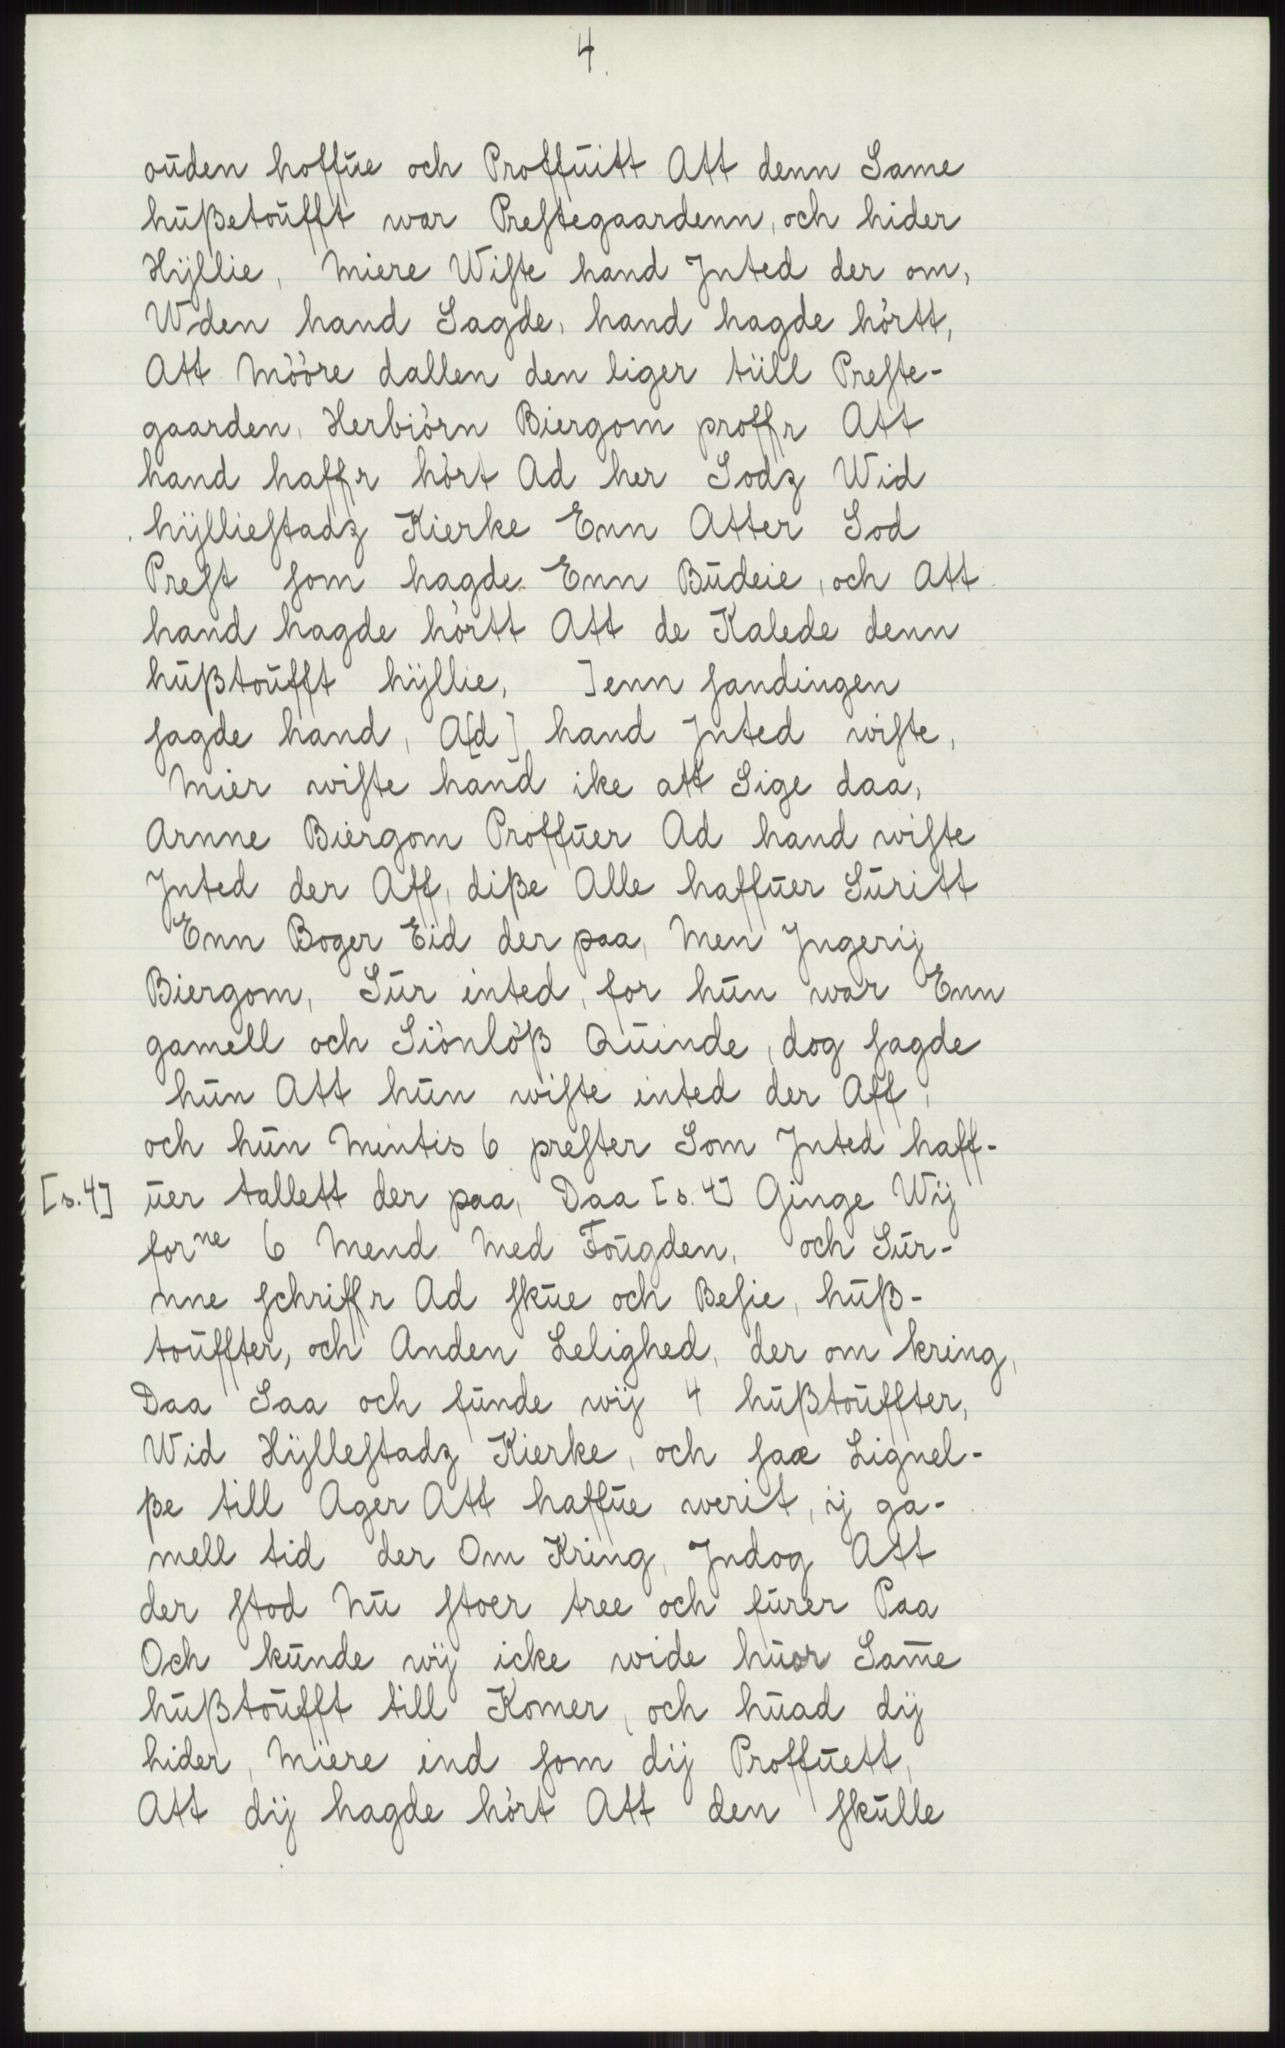 4.
ouden hoffue och Proffuitt Att denn Same
hußetoufft war Prestegaardenn, och hider
Hÿllie, Miere Wiste hand Jnted der om,
Wden hand Sagde, hand hagde hörtt,
Att Mööre dallen den liger tüll Preste-
gaarden, Herbiörn Biergom proffr Att
hand haffr hört Ad her Sodz Wid
hÿlliestadz Kierke Enn Atter Sod
Prest som hagde Enn Budeie, och Att
hand hagde hörtt Att de Kalede denn
hußtoufft hÿllie, Jenn sandingen
sagde hand, A[d] hand Jnted wiste,
Mier wiste hand ike att Sige daa,
Arnne Biergom Proffuer Ad hand wiste
Jnted der Aff, diße Alle haffuer Suritt
Enn Boger Eid der paa, Men Jngerij
Biergom, Sur inted, for hun war Enn
gamell och Siönlöß Quinde, dog sagde
hun Att hun wiste inted der Aff,
och hun Mintis 6 prester Som Jnted haff-
[s. 4] uer tallett der paa, Daa [s. 4] Ginge Wÿ
forne 6 Mend Med Fougden, och Sur-
nne schriffr Ad skue och Besie, huß-
touffter, och Anden Lelighed, der om kring,
Daa Saa och funde wÿ 4 hußtouffter,
Wid Hÿllestadz Kierke, och saa Lignel-
ße till Ager Att haffue werit, ij ga-
mell tid der Om Kring, Jndog Att
der stod Nu stoer tree och furer Paa
Och kunde wÿ icke wide huor Same
hußtoufft till Komer, och huad dÿ
hider, Miere end som dÿ Proffuett,
Att dÿ hagde hört Att den skulle